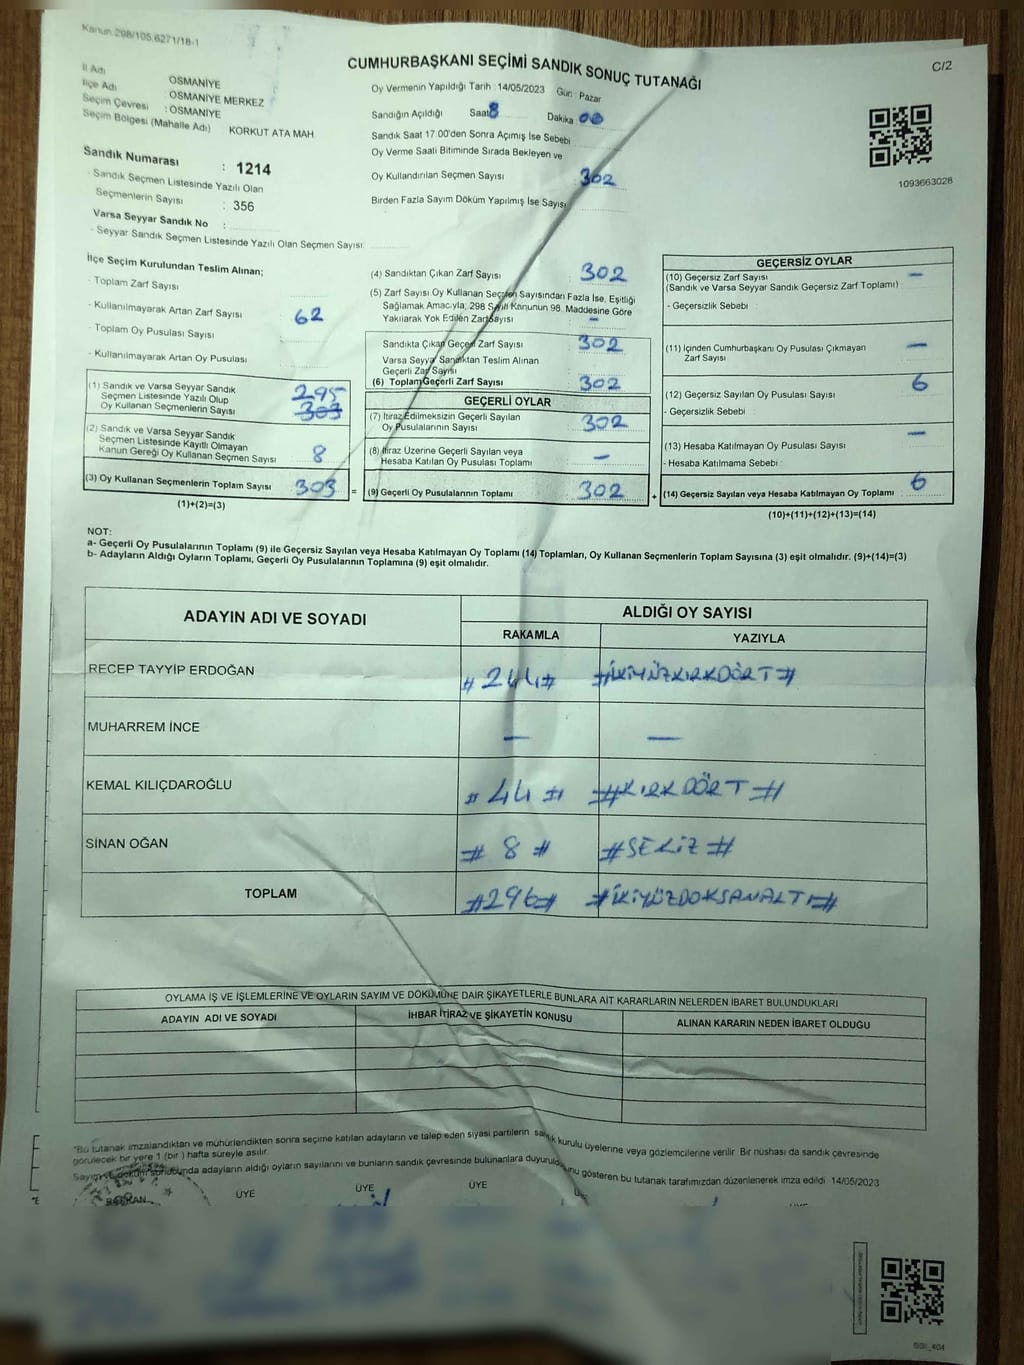 Kanun.298/105.6271/18-1
C/2
CUMHURBAŞKANI SEÇİMİ SANDIK SONUÇ TUTANAĞI
İl Adı OSMANİYE
İlçe Adı OSMANİYE MERKEZ
Seçim Çevresi : OSMANİYE
Seçim Bölgesi (Mahalle Adı) KORKUT ATA MAH
Sandık Numarası : 1214
- Sandık Seçmen Listesinde Yazılı Olan
Seçmenlerin Sayısı : 356
Varsa Seyyar Sandık No :
- Seyyar Sandık Seçmen Listesinde Yazılı Olan Seçmen Sayısı:
Oy Vermenin Yapıldığı Tarih :14/05/2023 Gün: Pazar
Sandığın Açıldığı Saat 8 Dakika 00
Sandık Saat 17.00'den Sonra Açımış İse Sebebi
Oy Verme Saati Bitiminde Sırada Bekleyen ve
Oy Kullandırılan Seçmen Sayısı 302
Birden Fazla Sayım Döküm Yapılmış İse Sayısı
1093663028
İlçe Seçim Kurulundan Teslim Alınan;
- Toplam Zarf Sayısı
- Kullanılmayarak Artan Zarf Sayısı 62
- Toplam Oy Pusulası Sayısı
- Kullanılmayarak Artan Oy Pusulası
(1) Sandık ve Varsa Seyyar Sandık
Seçmen Listesinde Yazılı Olup 295
Oy Kullanan Seçmenlerin Sayısı 303
(2) Sandık ve Varsa Seyyar Sandık
Seçmen Listesinde Kayıtlı Olmayan
Kanun Gereği Oy Kullanan Seçmen Sayısı 8
(3) Oy Kullanan Seçmenlerin Toplam Sayısı 303 =
(1)+(2)=(3)
(4) Sandıktan Çıkan Zarf Sayısı 302
(5) Zarf Sayısı Oy Kullanan Seçmen Sayısından Fazla İse, Eşitliği
Sağlamak Amacıyla, 298 Sayılı Kanunun 98. Maddesine Göre
Yakılarak Yok Edilen Zarf Sayısı –
Sandıkta Çıkan Geçerli Zarf Sayısı 302
Varsa Seyyar Sandıktan Teslim Alınan
Geçerli Zarf Sayısı
(6) Toplam Geçerli Zarf Sayısı 302
GEÇERLİ OYLAR
(7) İtiraz Edilmeksizin Geçerli Sayılan
Oy Pusulalarının Sayısı 302
(8) İtiraz Üzerine Geçerli Sayılan veya
Hesaba Katılan Oy Pusulası Toplamı –
(9) Geçerli Oy Pusulalarının Toplamı 302 +
GEÇERSİZ OYLAR
(10) Geçersiz Zarf Sayısı –
(Sandık ve Varsa Seyyar Sandık Geçersiz Zarf Toplamı)
- Geçersizlik Sebebi :
(11) İçinden Cumhurbaşkanı Oy Pusulası Çıkmayan
Zarf Sayısı –
(12) Geçersiz Sayılan Oy Pusulası Sayısı 6
- Geçersizlik Sebebi :
(13) Hesaba Katılmayan Oy Pusulası Sayısı –
- Hesaba Katılmama Sebebi :
(14) Geçersiz Sayılan veya Hesaba Katılmayan Oy Toplamı 6
(10)+(11)+(12)+(13)=(14)
NOT:
a- Geçerli Oy Pusulalarının Toplamı (9) ile Geçersiz Sayılan veya Hesaba Katılmayan Oy Toplamı (14) Toplamları, Oy Kullanan Seçmenlerin Toplam Sayısına (3) eşit olmalıdır. (9)+(14)=(3)
b- Adayların Aldığı Oyların Toplamı, Geçerli Oy Pusulalarının Toplamına (9) eşit olmalıdır.
ADAYIN ADI VE SOYADI ALDIĞI OY SAYISI
RAKAMLA YAZIYLA
RECEP TAYYİP ERDOĞAN #244# #İKİYÜZKIRKDÖRT#
MUHARREM İNCE – –
KEMAL KILIÇDAROĞLU #44# #KIRKDÖRT#
SİNAN OĞAN #8# #SEKİZ#
TOPLAM #296# #İKİYÜZDOKSANALTI#
OYLAMA İŞ VE İŞLEMLERİNE VE OYLARIN SAYIM VE DÖKÜMÜNE DAİR ŞİKAYETLERLE BUNLARA AİT KARARLARIN NELERDEN İBARET BULUNDUKLARI
ADAYIN ADI VE SOYADI İHBAR İTİRAZ VE ŞİKAYETİN KONUSU ALINAN KARARIN NEDEN İBARET OLDUĞU
*Bu tutanak imzalandıktan ve mühürlendikten sonra seçime katılan adayların ve talep eden siyasi partilerin sandık kurulu üyelerine veya gözlemcilerine verilir. Bir nüshası da sandık çevresinde
görülecek bir yere 1 (bir) hafta süreyle asılır.
Sayım ve döküm sonucunda adayların aldığı oyların sayılarını ve bunların sandık çevresinde bulunanlara duyurulduğunu gösteren bu tutanak tarafımızdan düzenlenerek imza edildi 14/05/2023
BAŞKAN ÜYE ÜYE ÜYE